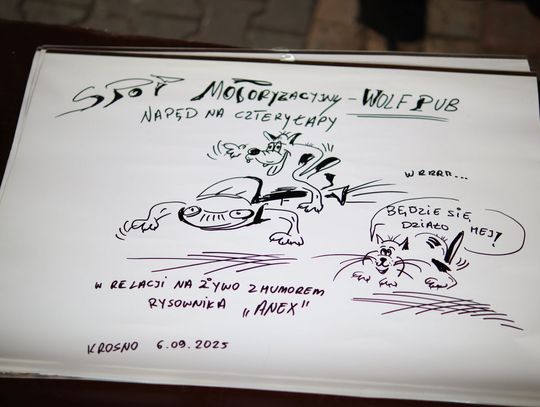 SPOT MOTORYZACYJNY - WOLF PUB
NAPĘD NA CZTERY ŁAPY
WRRRR...
BĘDZIE SIĘ
DZIAŁO HEJ!
W RELACJI NA ŻYWO Z HUMOREM
RYSOWNIKA „ANEX"
KROSNO 6.09.2025